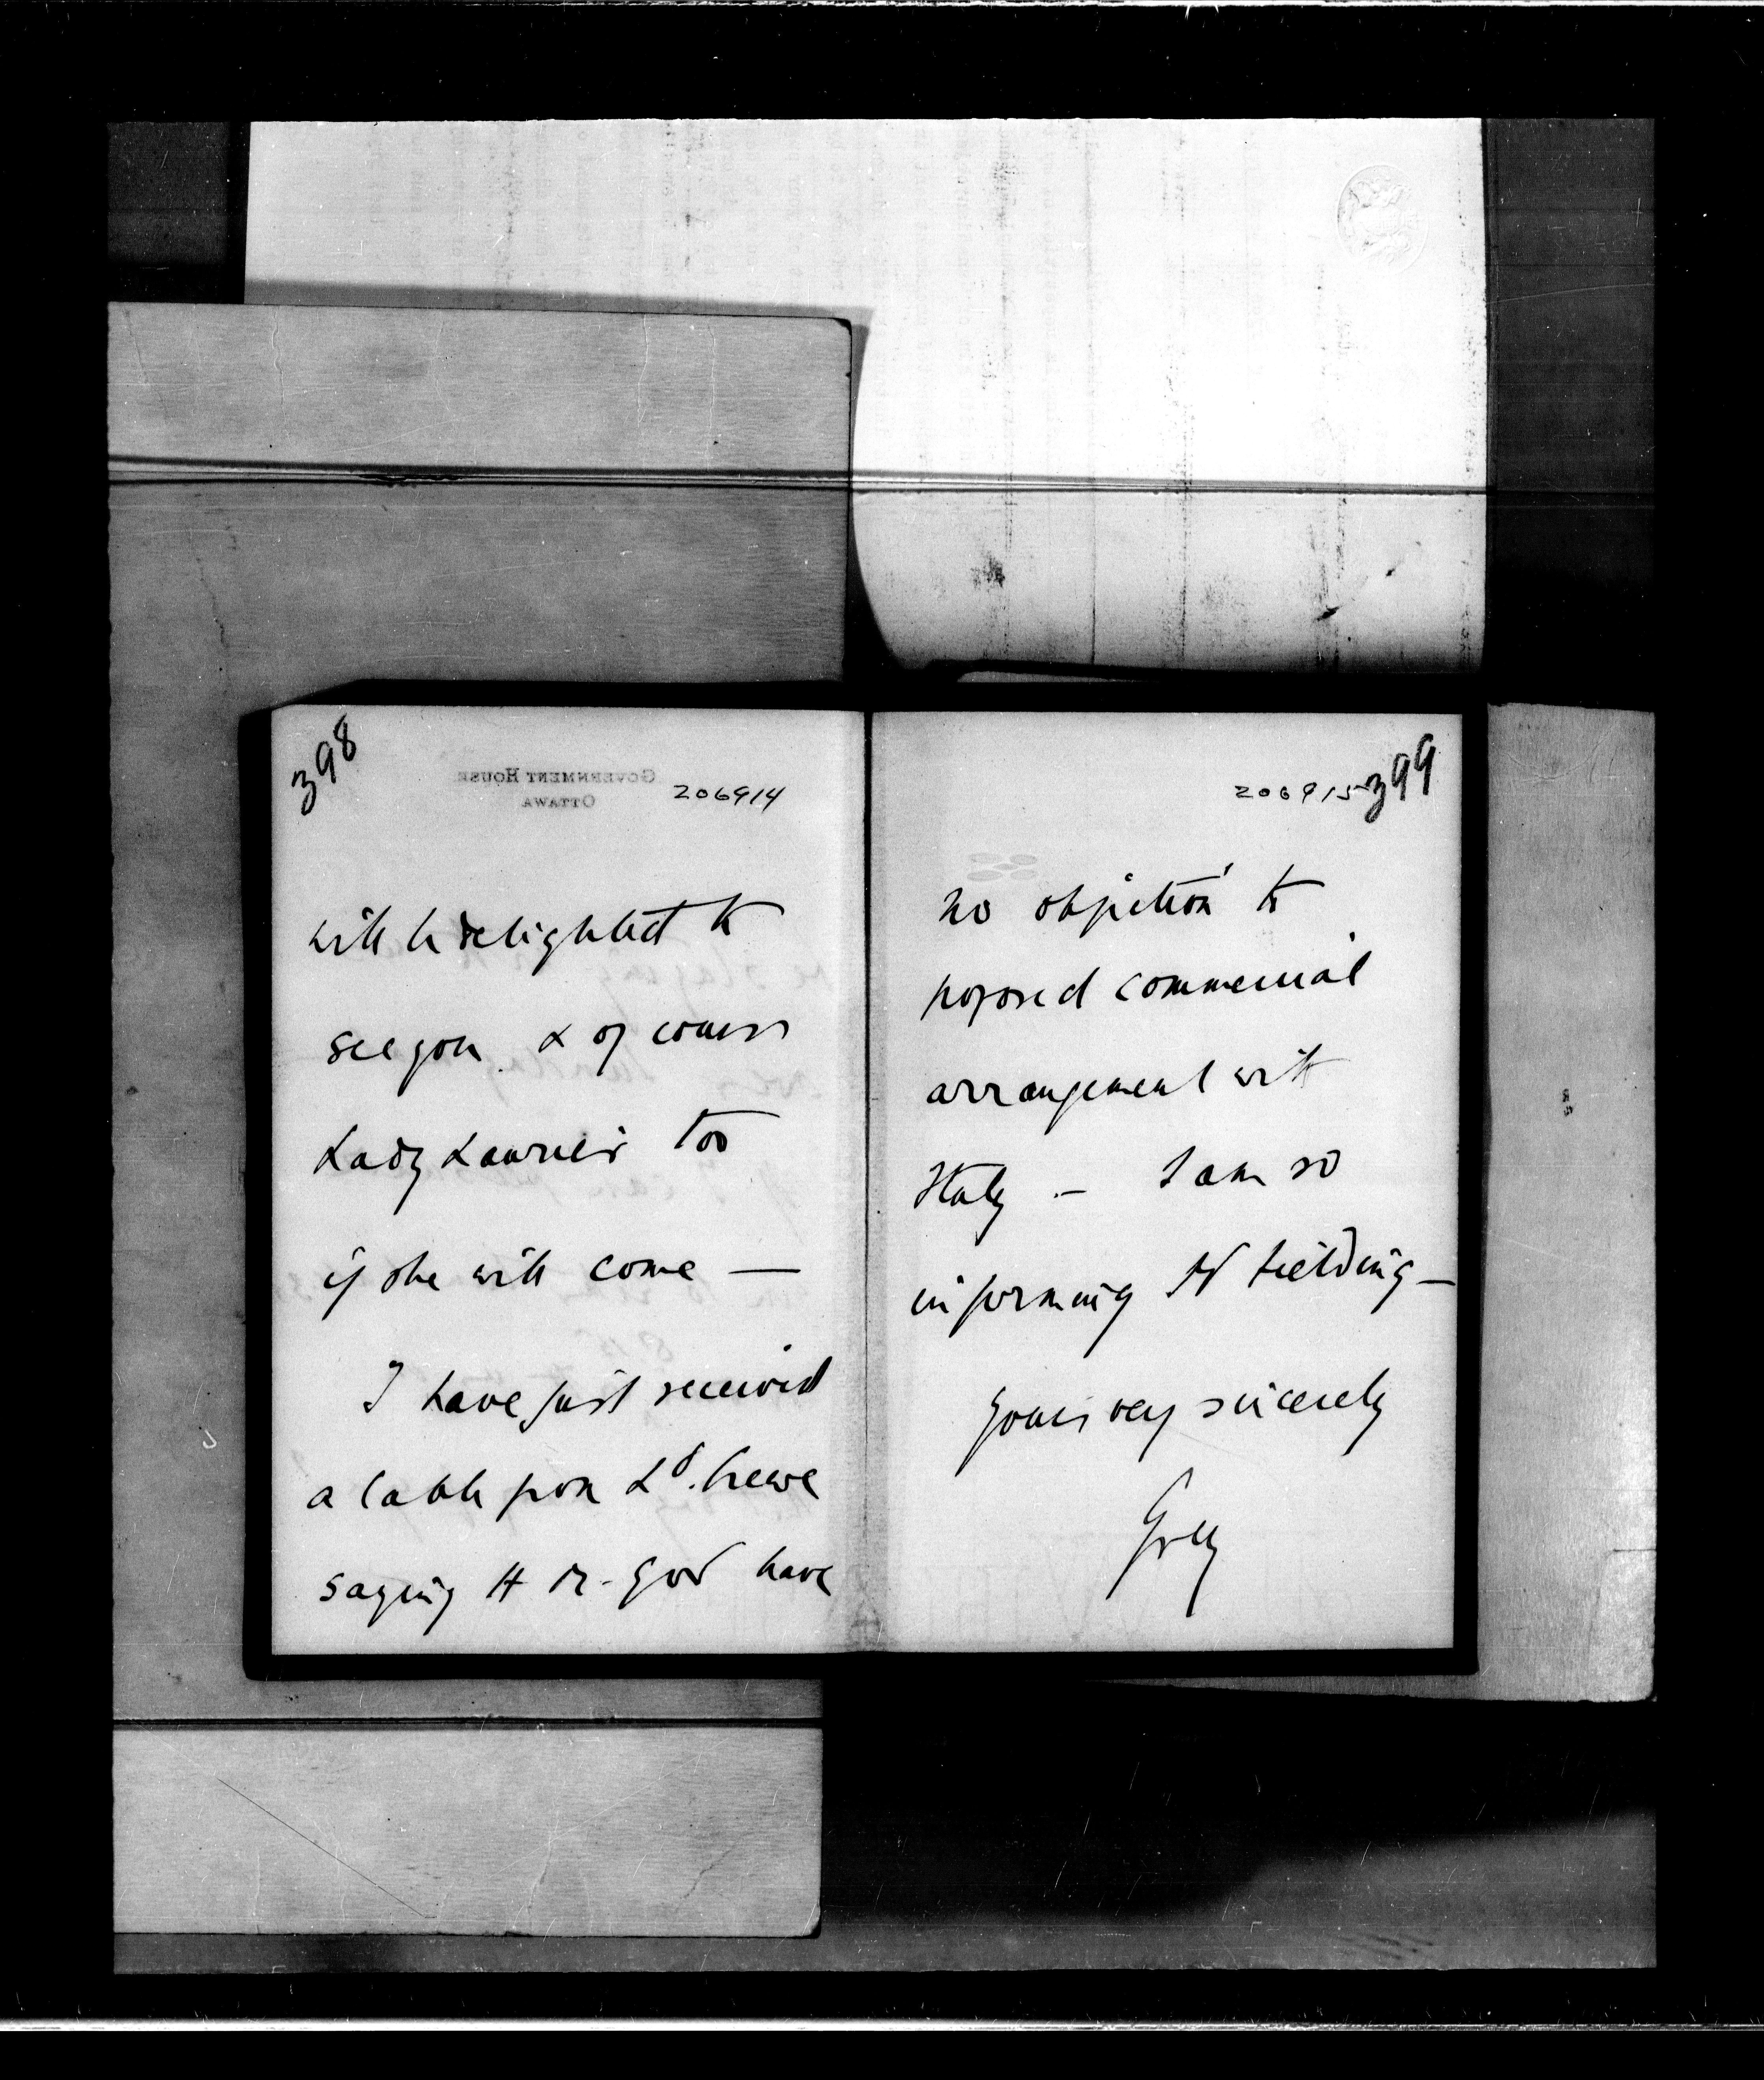 398
GOVERNMENT HOUSE
OTTAWA
206914
will be delighted to
see you & of course
Lady Laurier too
if she will come —
I have just received
a cable from Ld. Crewe
saying H M. Govt have
206915
399
no objection to
proposed commercial
arrangement with
Italy — I am so
informing Mr Fielding —
Yours very sincerely
Grey